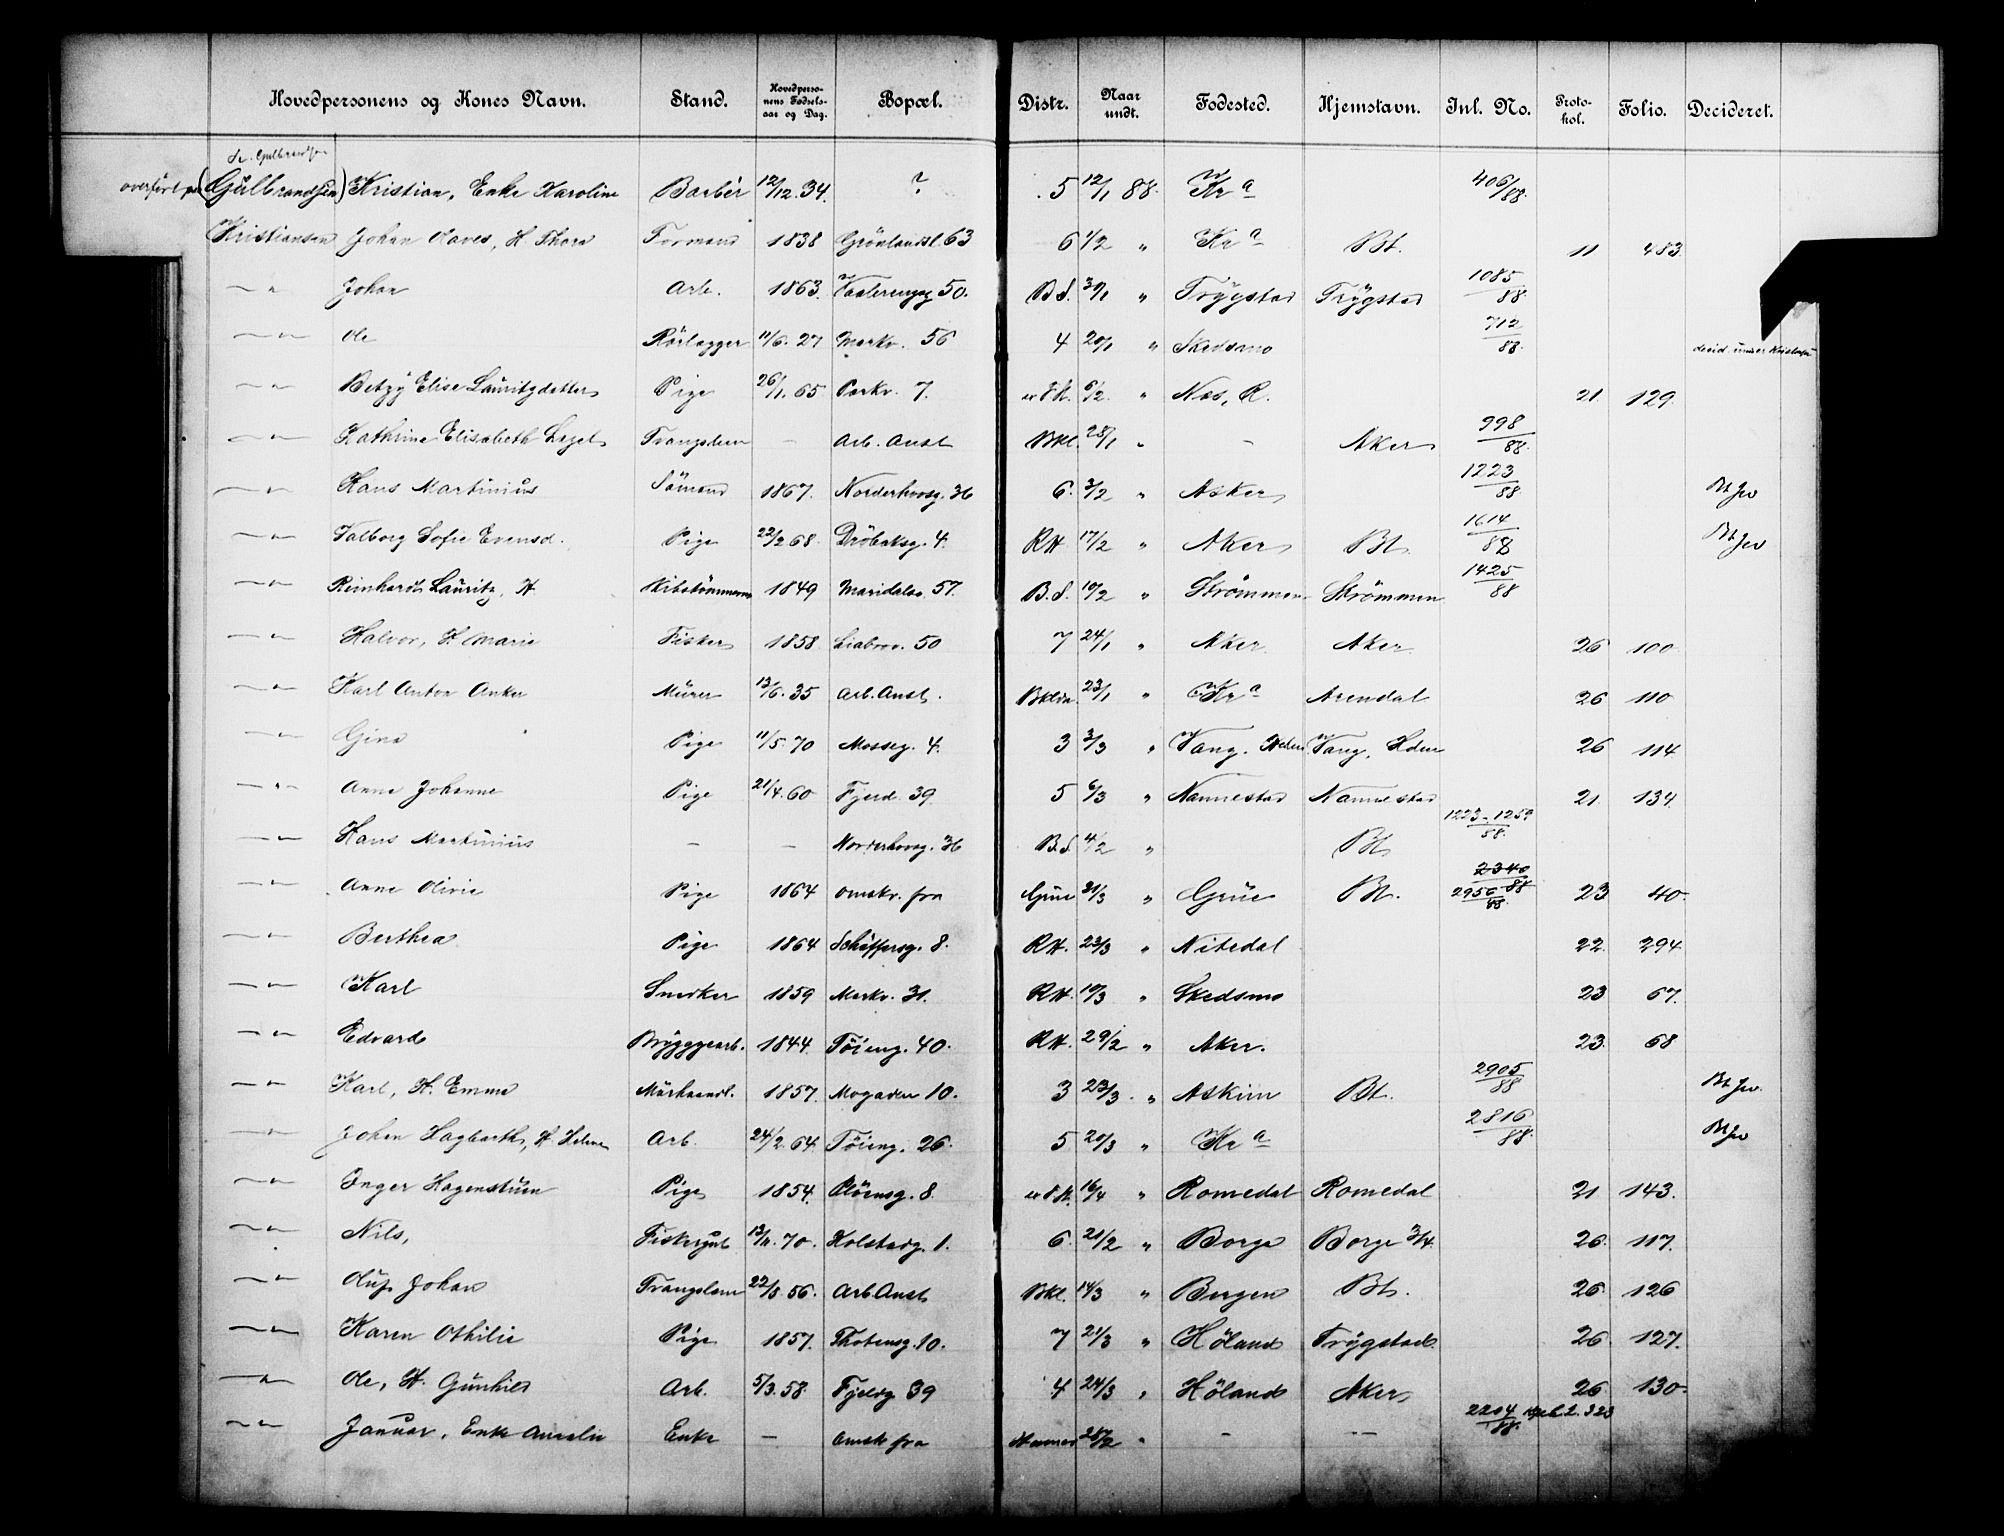 Hovedpersonens og Kones Navn. Stand. Hovedperso- nens Fødsels- aar og Dag. Bopæl. Distr. Naar undt. Fødested. Hjemstavn. Inl. No. Proto- kol. Folio. Decideret.
se. Gulbrandsen
overført paa (Gulbrandsen) Kristian, Enke Karoline Barbér 12/12.34. ? 5 12/1 88. Kr a 406/88.
Kristiansen Johan Olaves, H. Thora Formand 1838 Grönlandsl. 63 6 1/2 " Kr a Bt. 11 483.
— " — Johan Arb. 1863. Vaalerengg 50. B.S. 30/1 " Trygstad Trygstad 1085/88.
— " — Ole Rörlægger 11/6. 27 Markv. 56 4 20/1 " Skedsmo 712/88. decid. under Kristofa
— " — Betzy Elise Lauritzdatter Pige 26/1. 65 Parkv. 7. 6/2. " Næs, R. 21. 129.
— " — Kathrine Elisabeth Tvangslem — Arb. Anst. Bkl. 28/1 " — Aker 998/88.
— " — Hans Martinius Sömand 1867. Norderhovsg. 36 6. 3/2 " Asker 1223/88
— " — Valborg Sofie Evensd. Pige 22/2 68. Dröbaksg. 4. RH. 17/2 " Aker Bt. 1614/88
— " — Reinhardt Lauritz, H. Skibstömmerm 1849 Maridalsv. 57. B.S. 10/2 " Strömmen Strömmen 1425/88
— " — Halvor, H. Marie Fisker 1858 Liabrov. 50 7 24/1 " Aker Aker 26 100
— " — Karl Anton Anker Mürer 13/6. 35 Arb. Anst. 23/1 " Kr a Arendal 26 110
— " — Gina Pige 11/5. 70 Mosseg. 4. 3 3/3 " Vang. Hedm Vang, Hdm 26 114
— " — Anne Johanne Pige 21/4. 60 Fjerd. 39 5 6/3 " Nannestad Nannestad 21. 134.
— " — Hans Martinius — — Norderhovsg. 36 B.S. 4/2 " Bt. 1223-1259/88.
— " — Anne Olivie Pige 1864 Omskr. fra Grue 21/3 " Grue Bt. 2340/88 2956/88. 23 40.
— " — Berthea Pige 1864 Schöffersg. 8. RH. 23/3 " Nitedal 22. 294.
— " — Karl Snedker 1859 Markv. 31. RH. 10/3 " Skedsmo 23 67.
— " — Edvard Bryggearb. 1844. Töieng. 40. RH. 29/2 " Aker. 23. 68
— " — Karl, H. Emma 1857. Mogaden 10. 3 23/3. " Askim Bt. 2905/88
— " — Johan Hagbarth, H. Helene Arb. 24/2. 64. Töieng. 26. 5 20/3 " Kr a 2816/88.
— " — Inger Hagenstuen Pige 1854. Plöensg. 8. 16/4 " Romedal Romedal 21 143.
— " — Nils, Fiskergut 13/11. 70. Holstadg. 1. 6. 21/2 " Borge Borge 3/4. 26. 117.
— " — Oluf Johan Tvangslem 22/8. 56. Arb. Anst. Bkl. 14/3 " Bergen Bt. 26. 126
— " — Karen Othilie Pige 1857. Thotensg. 10. 7 21/3 " Höland Trygstad. 26. 127.
— " — Ole, H. Gunhild Arb. 5/3. 58. Fjeldg 39 4 24/3 " Höland Aker 26 130.
— " — Januar, Enke Amalie Enke — Omsk fra 28/2 " — — 2204/88. 323